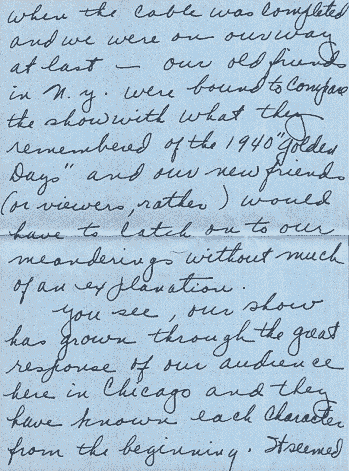 when the cable was completed
and we were on our way
at last — our old friends
in N. Y. were bound to compare
the show with what they
remembered of the 1940 "Golden
Days" and our new friends
(or viewers, rather) would
have to latch on to our
meanderings without much
of an explanation.
You see, our show
has grown through the great
response of our audience
here in Chicago and they
have known each character
from the beginning. It seemed